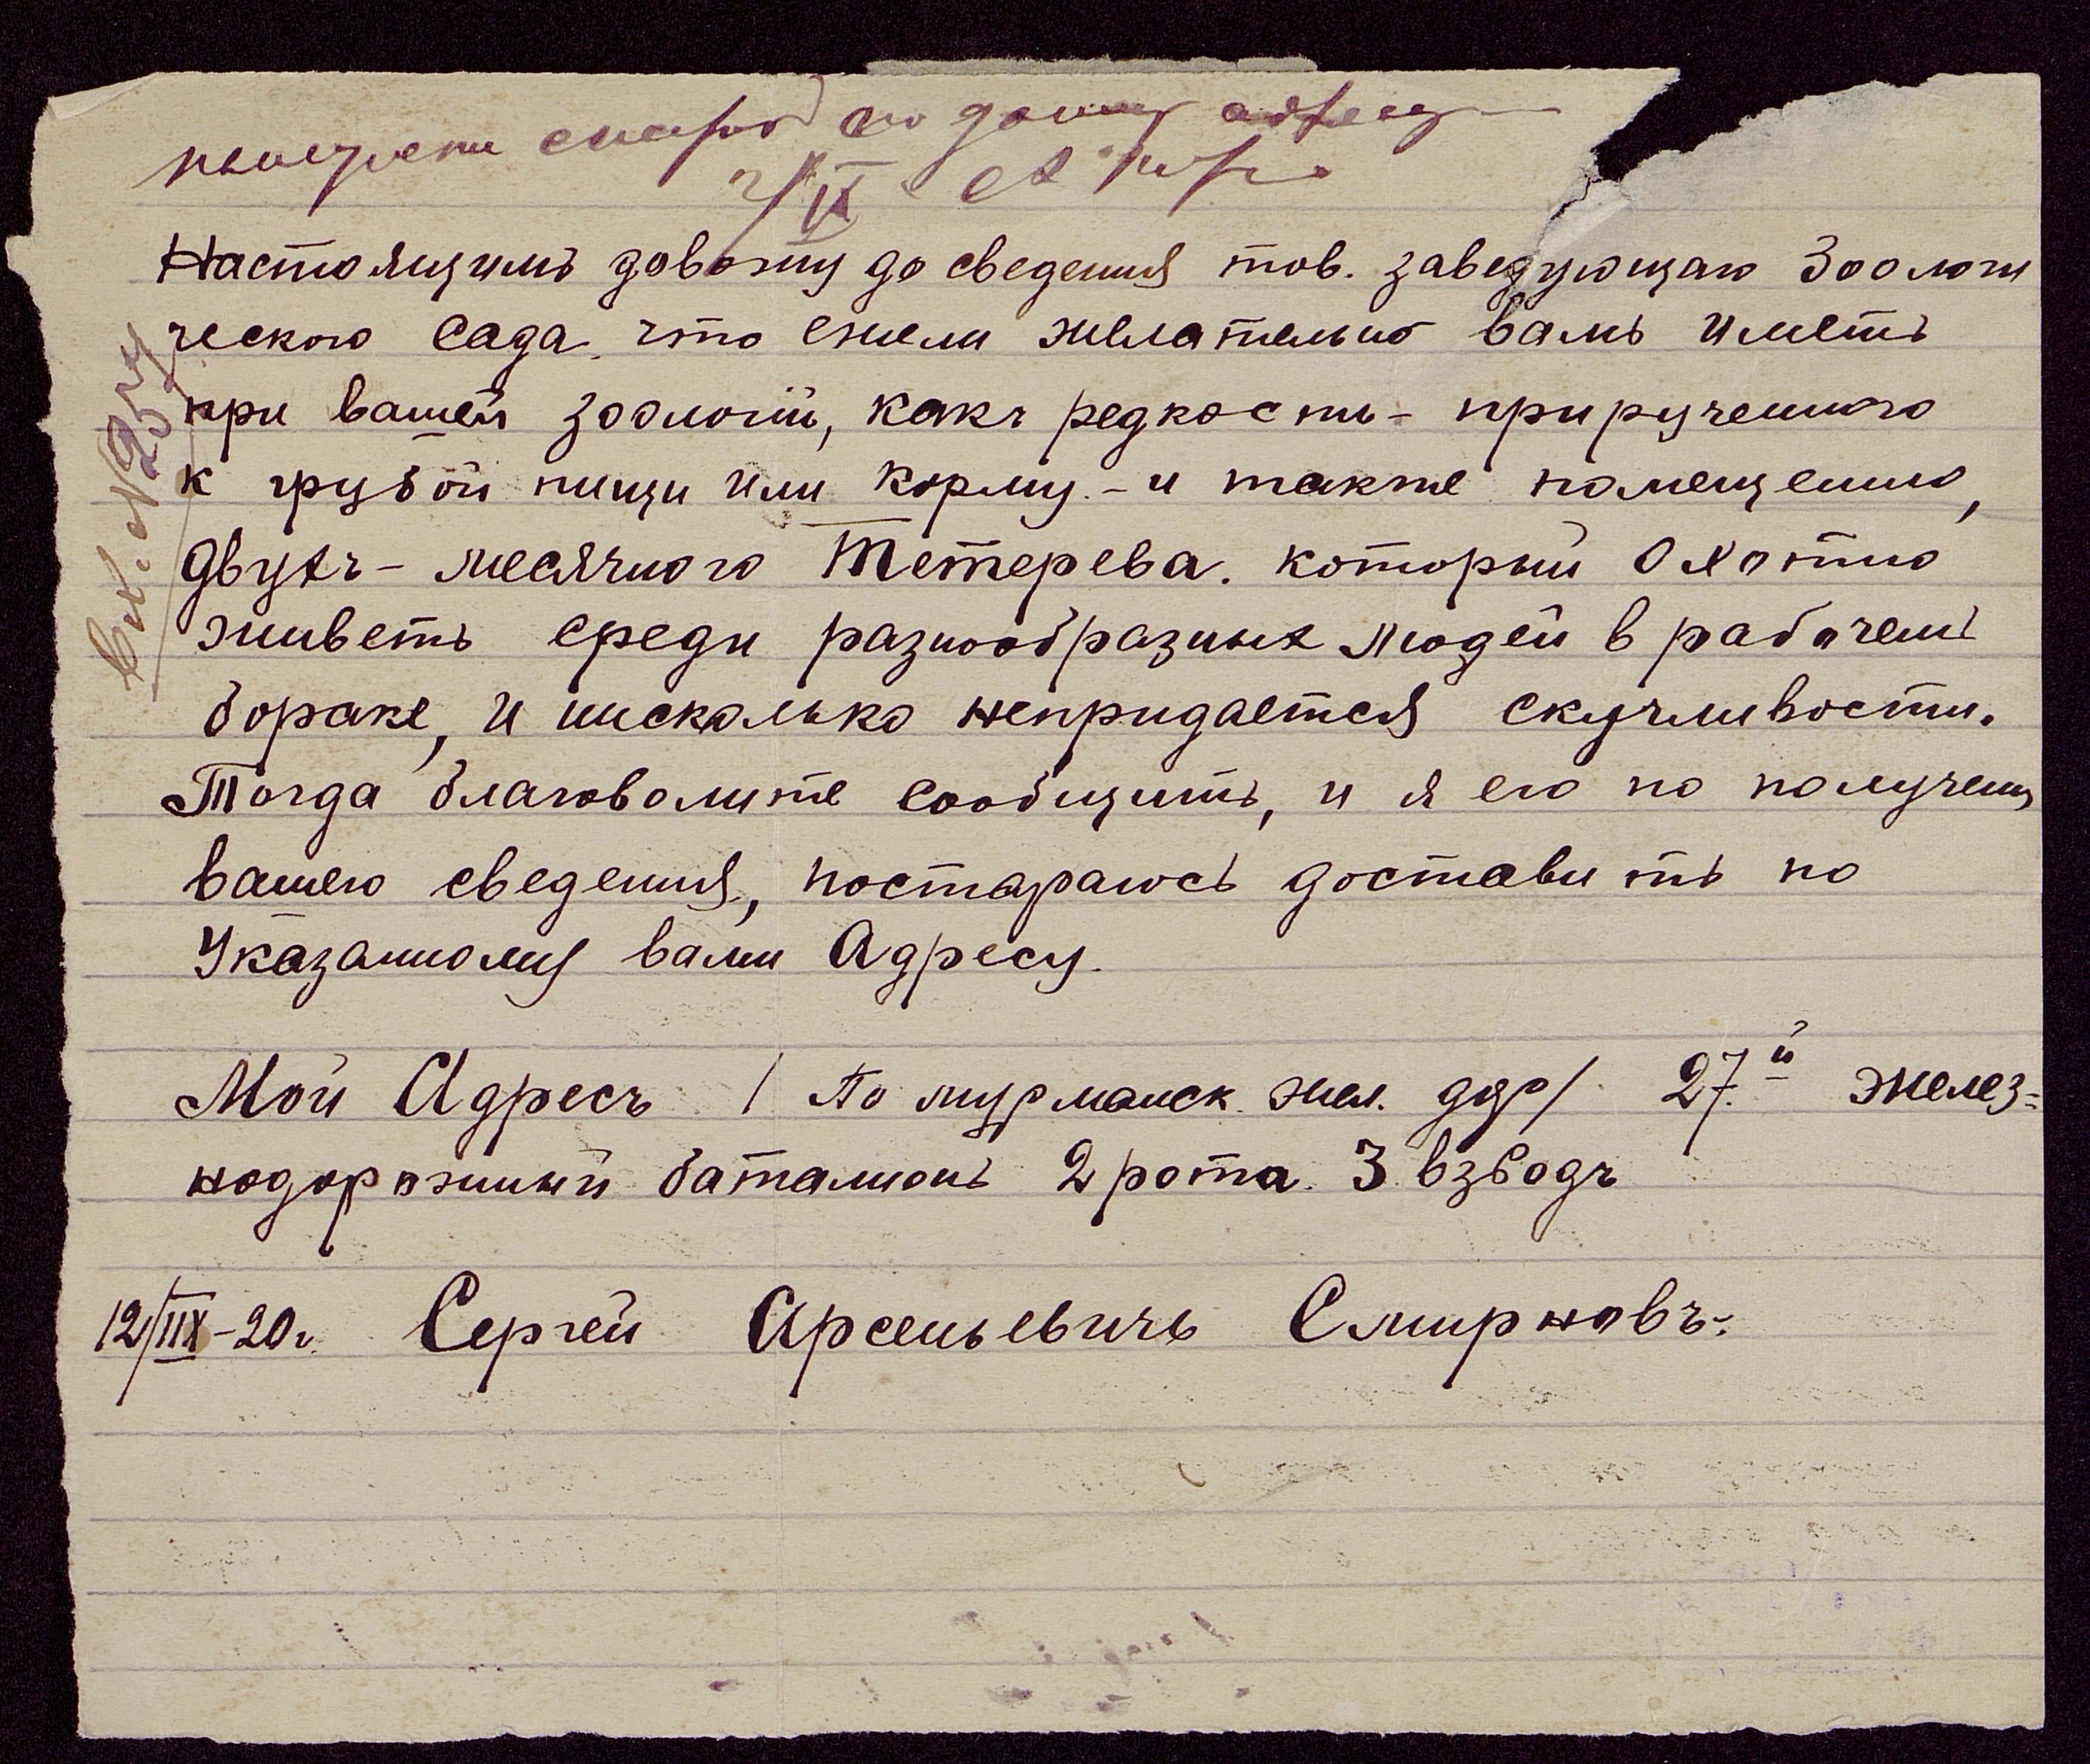 по дому адресу
Настоящимъ довожу до сведения тов. заведующаго Зоологи
ческого Сада что ежели желательно вамъ иметь
при вашей зоологiи, какъ редкость - прирученного
к грубой пищи или корму. - и также помещению,
Двухъ - месячного Тетерева. который Охотно
живетъ среди разнообразных людей в рабочемъ
бораке, и нисколько непридается скучливости.
Тогда благоволите сообщить, и я его по получении
вашего сведения, постараюсь доставить по
Указанному вами Адресу.
Мой Адресъ / По мурманск. жел. дор / 27й желез=
нодорожный баталионъ 2 рота. 3 взводъ
12/IIX - 20 г. Сергей Арсеньевичъ Смирновъ.
Вх. №